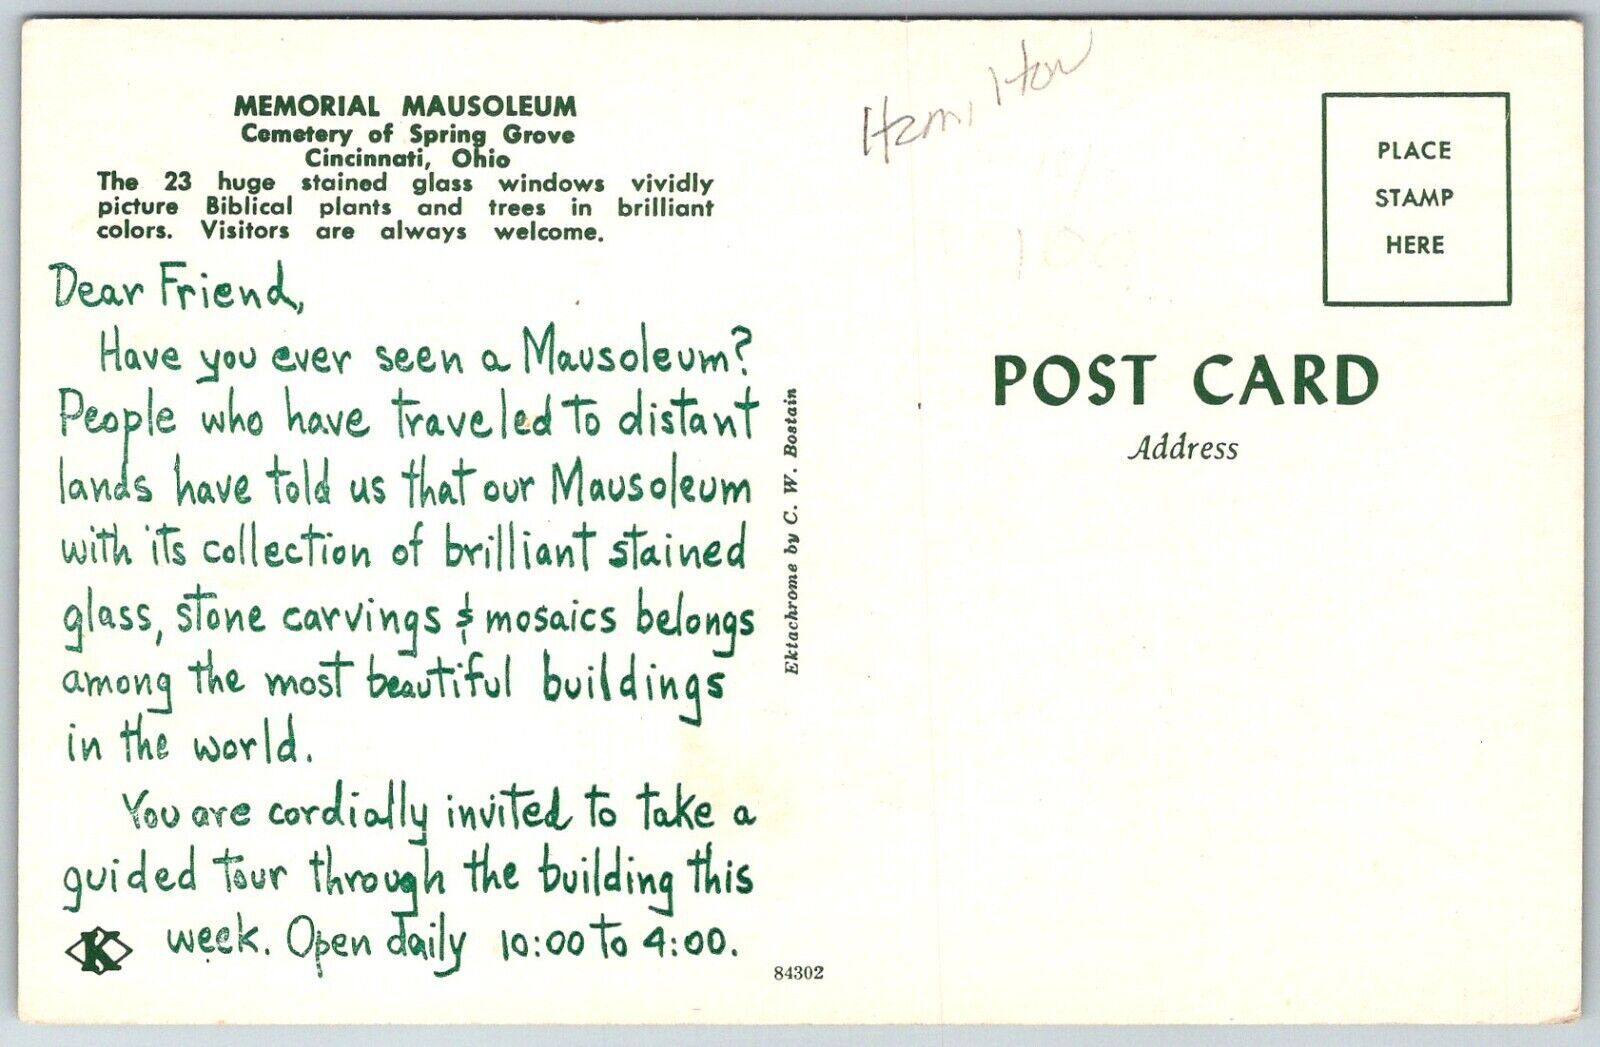 MEMORIAL MAUSOLEUM
Cemetery of Spring Grove
Cincinnati, Ohio
The 23 huge stained glass windows vividly
picture Biblical plants and trees in brilliant
colors. Visitors are always welcome.
Dear Friend,
Have you ever seen a Mausoleum?
People who have traveled to distant
lands have told us that our Mausoleum
with its collection of brilliant stained
glass, stone carvings & mosaics belongs
among the most beautiful buildings
in the world.
You are cordially invited to take a
guided tour through the building this
week. Open daily 10:00 to 4:00.
K
Ektachrome by C. W. Bostain
84302
Hamilton
100
PLACE
STAMP
HERE
POST CARD
Address